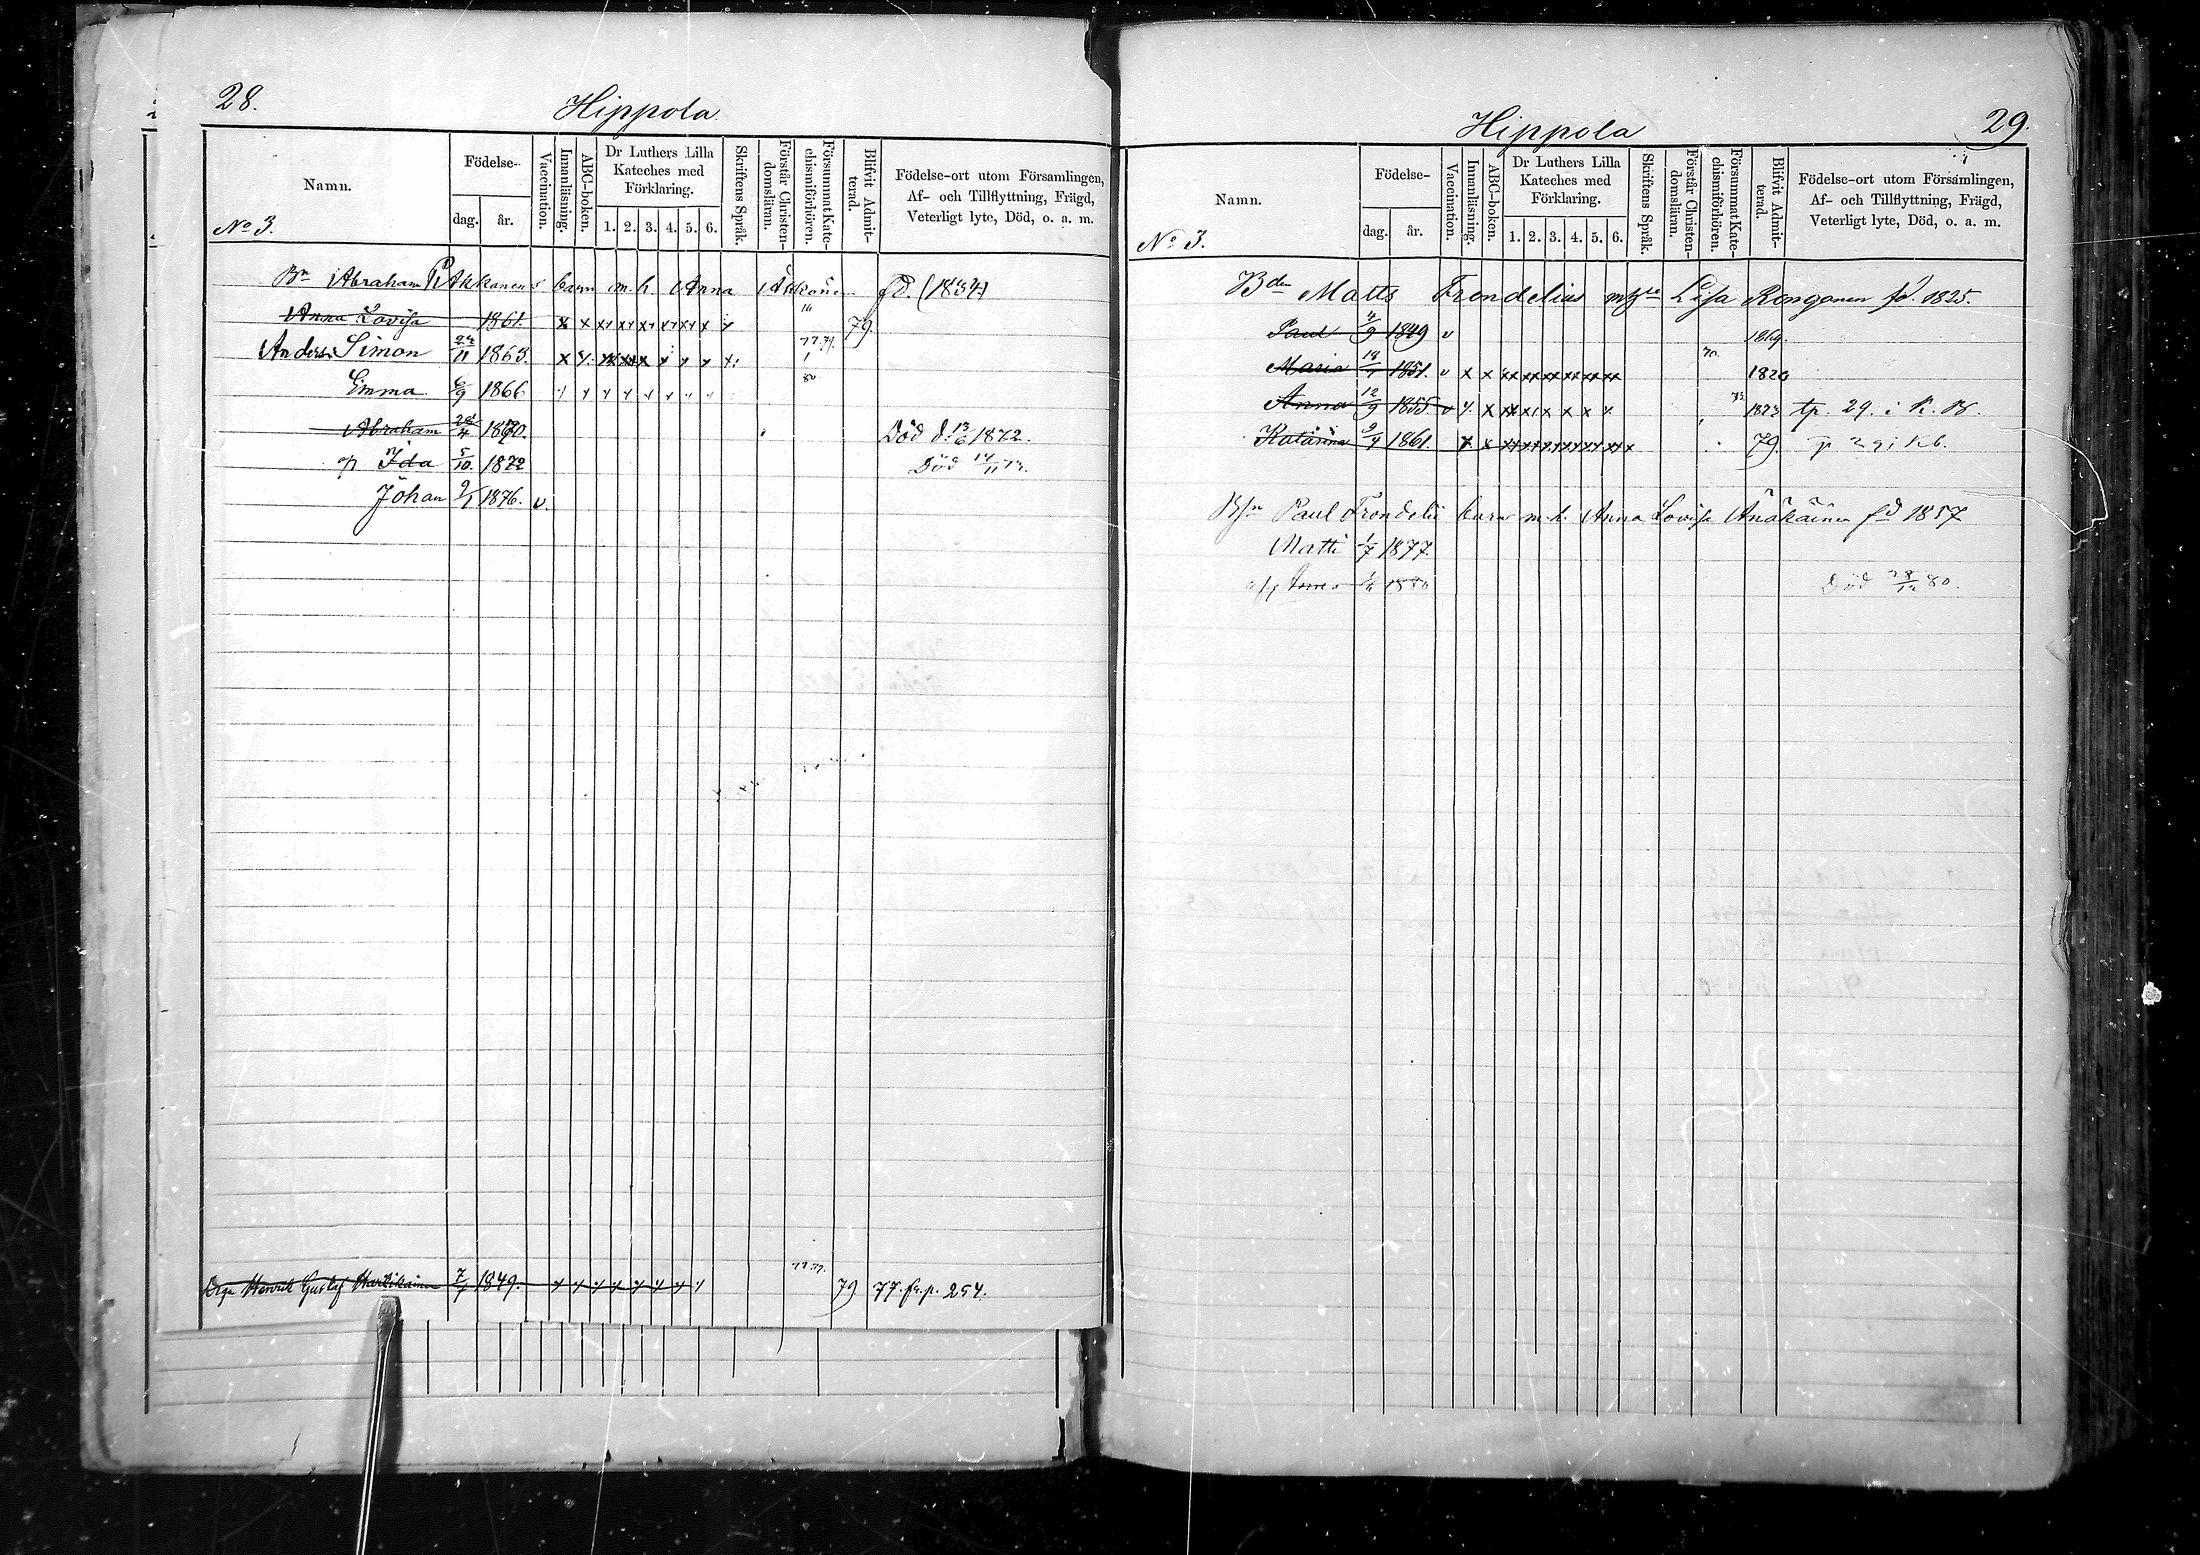 28.
Hippola
Namn.
No 3.
Födelse-
dag.
år.
Vaccination.
Innanläsning.
ABC-boken.
Dr Luthers Lilla
Kateches med
Förklaring.
1. 2. 3. 4. 5. 6.
Skriftens Språk.
Förstår Christen-
domsläran.
Försummat Kate-
chismiförhören.
Blifvit Admit-
terad.
Födelse-ort utom Församlingen,
Af- och Tillflyttning, Frägd,
Veterligt lyte, Död, o. a. m.
Bn Abraham barn m. h. Anna fd. (1834)
Anna Lovisa 1861. x x 79.
Anders Simon 24/11 1863. x
Emma 6/9 1866
Abraham 1870. Död d. 13/6 1872.
Ida 5/10. 1872 Död 14/11 73.
Johan 9/1 1876. v.
Henrik Gustaf 7/1 1849. 79 77. fr. p. 254.
Hippola
29.
Namn.
No 3.
Födelse-
dag.
år.
Vaccination.
Innanläsning.
ABC-boken.
Dr Luthers Lilla
Kateches med
Förklaring.
1. 2. 3. 4. 5. 6.
Skriftens Språk.
Förstår Christen-
domsläran.
Försummat Kate-
chismiförhören.
Blifvit Admit-
terad.
Födelse-ort utom Församlingen,
Af- och Tillflyttning, Frägd,
Veterligt lyte, Död, o. a. m.
Bden Matts Frondelius Lisa Rongonen fd. 1825.
Paul 4/9 1849 v 1869.
Maria 1851. v x x 70. 1870
Anna 12/9 1855 v 73 1873 tp. 29. i K. B.
Katarina 9/4 1861. 79. p 29 i Kb.
Paul Frondelii barn m. h. Anna Lovisa fd 1857
Matti 1/7 1877.
1880 Död 28/12 80.